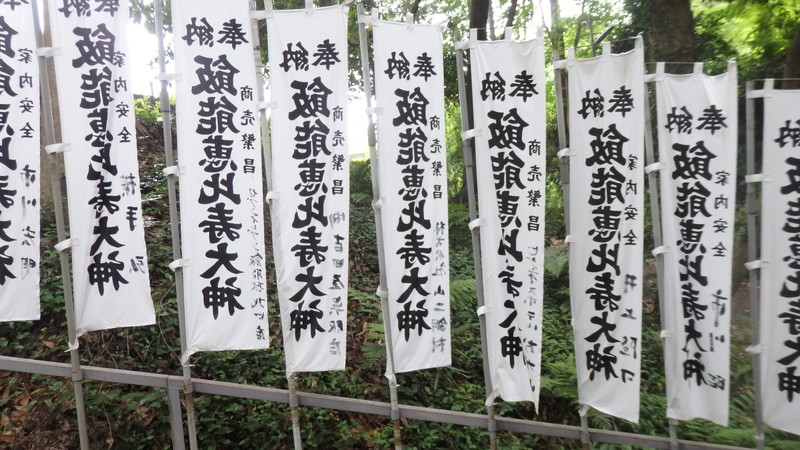 飯能恵比寿大神
家内安全
飯能恵比寿大神
家内安全
奉納
飯能恵比寿大神
商売繁昌
奉納
飯能恵比寿大神
商売繁昌 吉田屋呉服店
奉納
飯能恵比寿大神
商売繁昌 株式会社 山二
奉納
飯能恵比寿大神
商売繁昌
奉納
飯能恵比寿大神
家内安全 井上
奉納
飯能恵比寿大神
家内安全 市川
納
飯能恵比寿大神